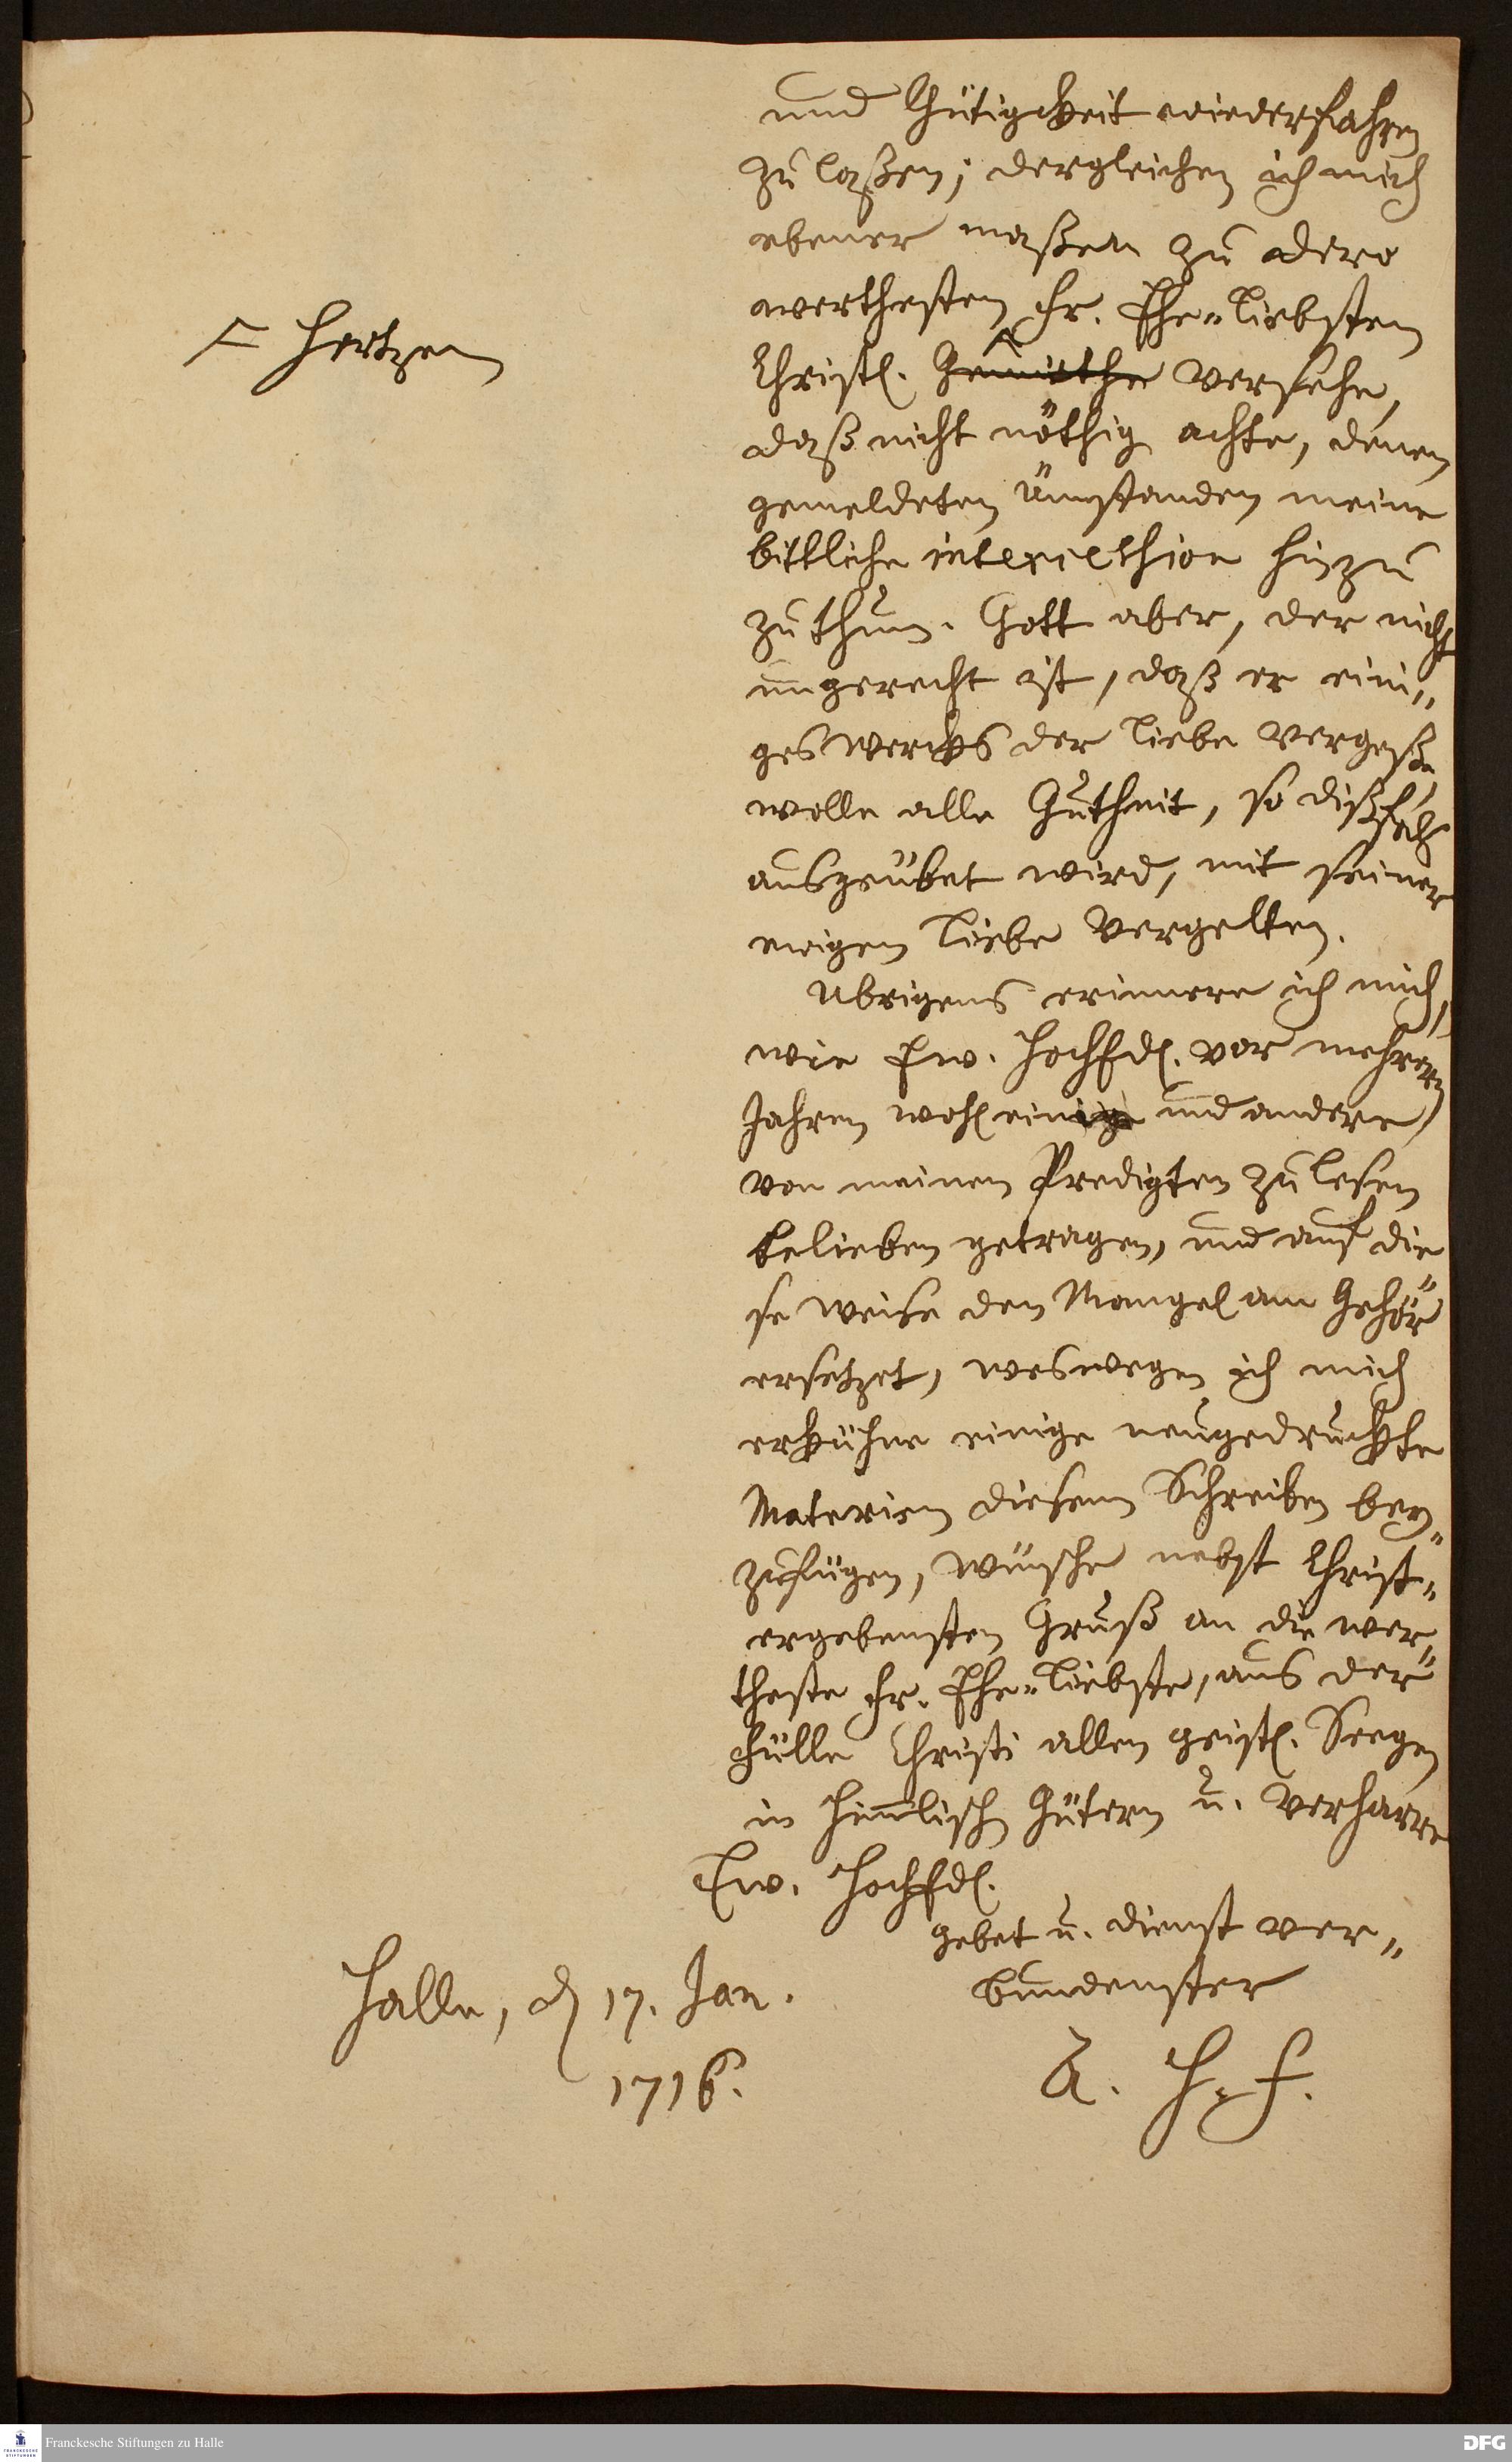 und Gütigckeit wiederfahren
zu laßen; dergleichen ich mich
ebener maßen zu dero
werthesten Fr. Ehe-Liebsten
Hertzen
Christl. Gemüthe versehe,
daß nicht nöthig achte, denen
gemeldeten Umständen meine
bittliche hinzu
zuthun. Gott aber, der nicht
ungerecht ist, daß er eini-
ges wercks der Liebe vergeße,
wolle alle Gutheit, so dißfals
ausgeübet wird, mit seiner
ewigen Liebe vergelten.
Ubrigens erinnere ich mich,
wie Ew. Hochfdl. vor mehrern
Jahren wohl einige und andere
von meinen Predigten zu lesen
belieben getragen, und auf die
se weise den Mangel am Gehör
ersetzet, weswegen ich mich
erkühne einige neugedruckte
Materien diesem Schreiben bey-
zufügen, wünsche nebst Christ-
ergebensten Gruß an die wer-
theste Fr. Ehe-Liebste, aus der
Fülle Christi allen geistl. Seegen
in himmlisch Gütern u. verharre
Ew. Hochfdl.
gebet u. dienst ver-
bundenster
Halle, d 17. Jan.
1716.
A. H. F.
Franckesche Stiftungen zu Halle
DFG